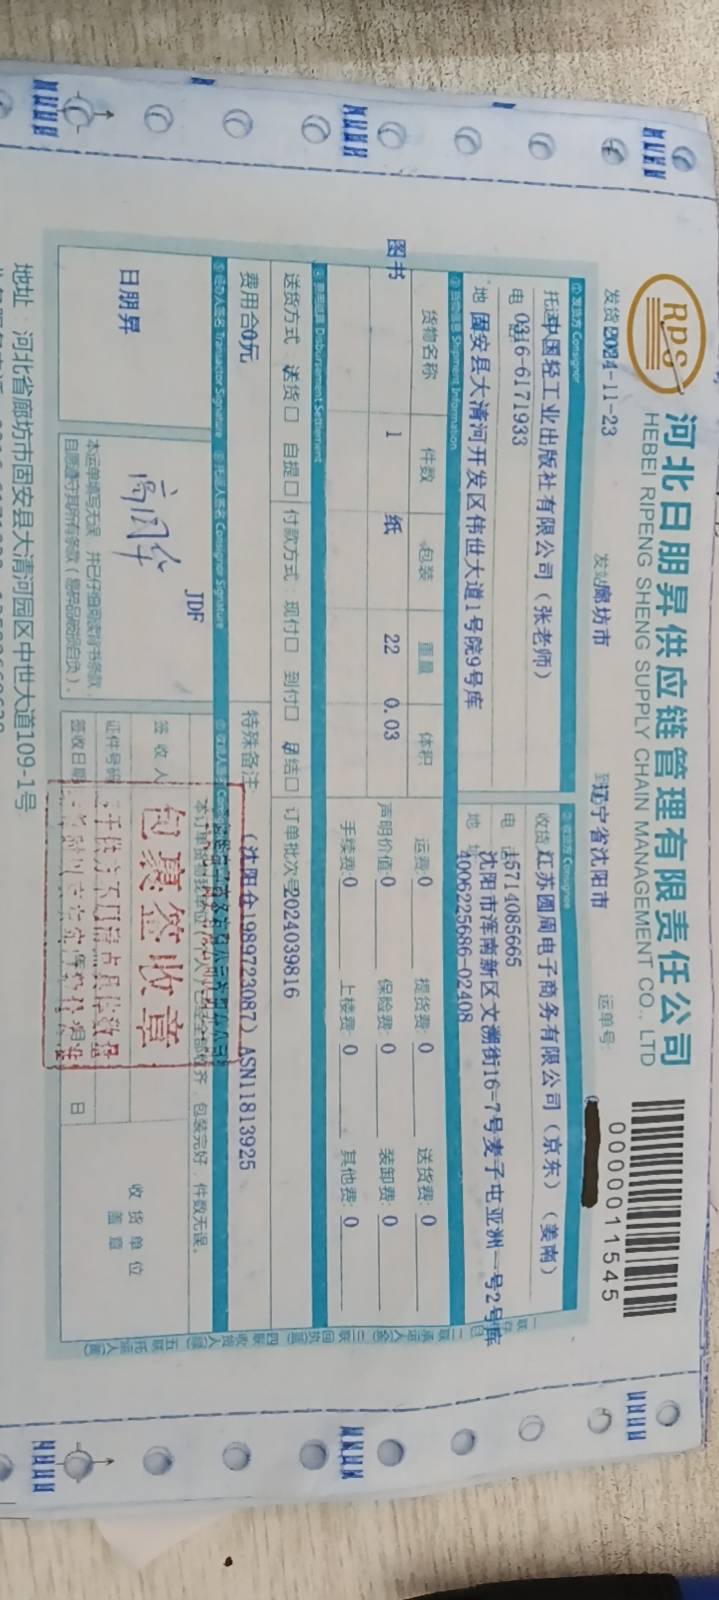 RPS
河北日朋昇供应链管理有限责任公司
HEBEI RIPENG SHENG SUPPLY CHAIN MANAGEMENT CO., LTD
0000011545
发货 2024-11-23
发站 廊坊市
到 辽宁省沈阳市
运单号:
①发货方 Consignor
②收货方 Consignee
托运 中国轻工业出版社有限公司（张老师）
收货 江苏圆周电子商务有限公司（京东）（姜南）
电 0316-6171933
电 15714085665
地 固安县大清河开发区伟世大道1号院9号库
地 沈阳市浑南新区文溯街16-7号麦子屯亚洲一号2号库
4006225686-02408
③货物信息 Shipment Information
货物名称 件数 包装 重量 体积
运费:0 提货费:0 送货费:0
图书 1 纸 22 0.03
声明价值:0 保险费:0 装卸费:0
手续费:0 上楼费:0 其他费:0
④费用结算 Disbursement Settlement
送货方式: 送货口 自提口 付款方式: 现付口 到付口 月结口 订单批次号 2024039816
费用合 0元
特殊备注: (沈阳仓1989723087) ASN11813925
⑤经办人签名 Transactor Signature
⑥托运人签名 Consignor Signature
日朋昇
JDF
本运单填写无误，并已仔细阅读背书条款，
自愿遵守其所有条款（易碎品破损自负）。
包装完好，件数无误。
签收人
证件号码
签收日期
日
收货单位
盖章
包裹签收章
地址：河北省廊坊市固安县大清河园区中世大道109-1号